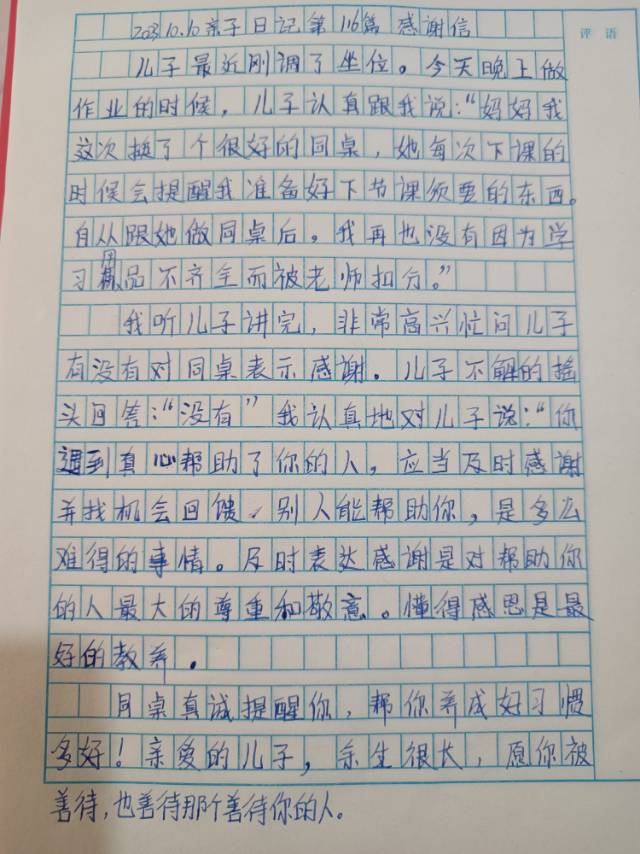 评语
2023.10.10亲子日记第116篇 感谢信
儿子最近刚调了坐位。今天晚上做
作业的时候，儿子认真跟我说：“妈妈我
这次换了个很好的同桌，她每次下课的
时候会提醒我准备好下节课须要的东西。
自从跟她做同桌后，我再也没有因为学
习用品不齐全而被老师扣分。”
我听儿子讲完，非常高兴忙问儿子
有没有对同桌表示感谢。儿子不解的摇
头回答：“没有”我认真地对儿子说：“你
遇到真心帮助了你的人，应当及时感谢
并找机会回馈、别人能帮助你，是多么
难得的事情。及时表达感谢是对帮助你
的人最大的尊重和敬意。懂得感恩是最
好的教养。
同桌真诚提醒你，帮你养成好习惯
多好！亲爱的儿子，余生很长，愿你被
善待，也善待那个善待你的人。